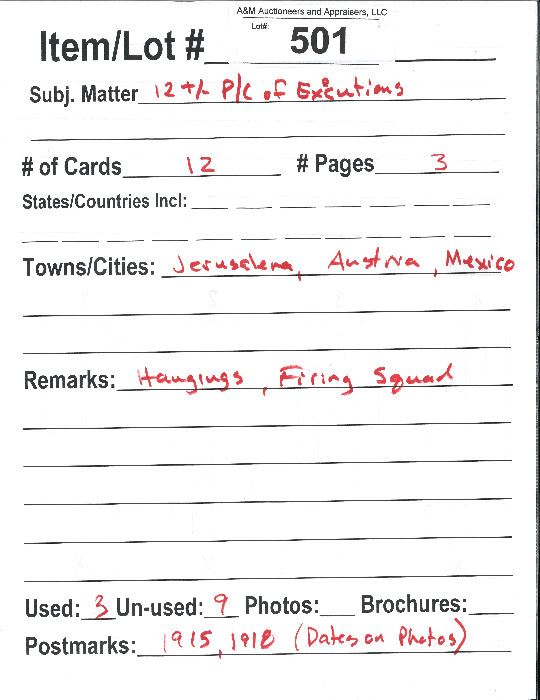 A&M Auctioneers and Appraisers, LLC
Lot#:
Item/Lot # 501
Subj. Matter 12 +/- P/C of Executions
# of Cards 12 # Pages 3
States/Countries Incl:
Towns/Cities: Jeruselem, Austria, Mexico
Remarks: Hangings, Firing Squad
Used: 3 Un-used: 9 Photos: Brochures:
Postmarks: 1915, 1918 (Dates on Photos)